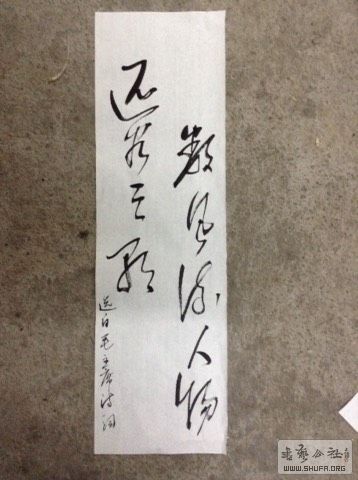 数风流人物
还看今朝
选自毛主席诗词
書藝公社
WWW.SHUFA.ORG